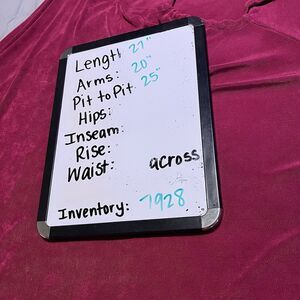 Length 27"
Arms: 20"
Pit to Pit 25"
Hips:
Inseam:
Rise:
Waist: across
Inventory: 7928